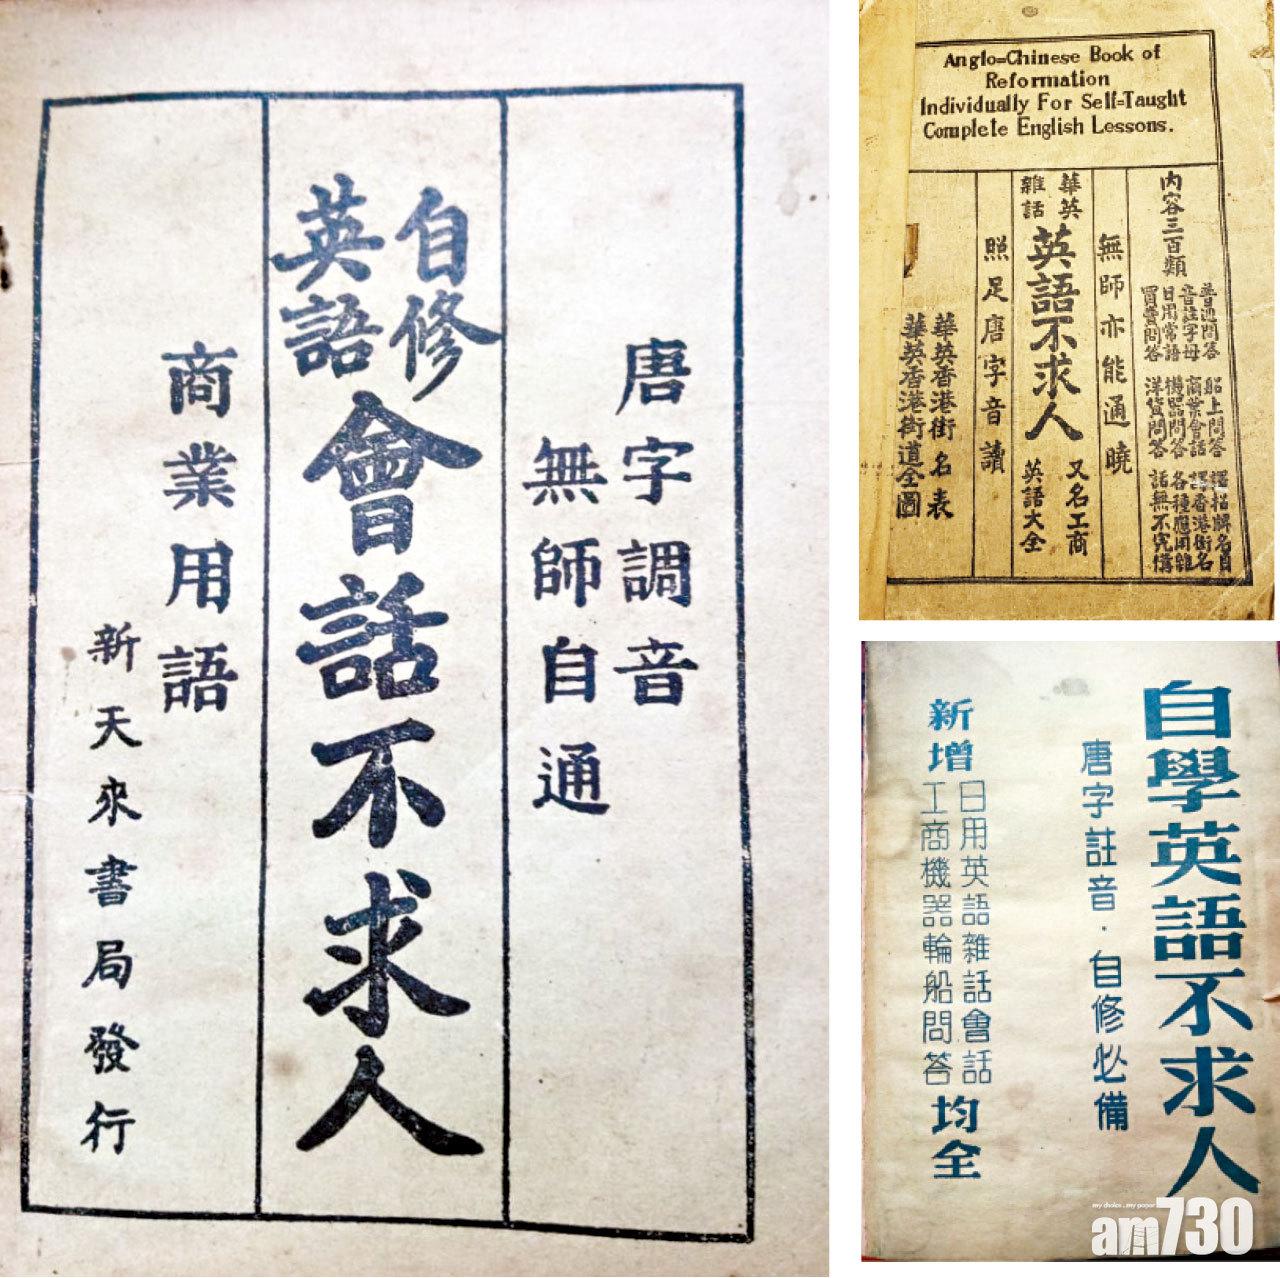 唐字調音
無師自通
自修
英語
會話不求人
商業用語
新天來書局發行
Anglo=Chinese Book of
Reformation
Individually For Self=Taught
Complete English Lessons.
內容三百類
普通問答
音註字母
日用常語
買賣問答
船上問答
商業會話
機器問答
洋貨問答
譯招牌名目
譯香港街名
各種應用雜
話無不完備
無師亦能通曉
華英
雜話
英語不求人
又名工商
英語大全
照足唐字音讀
華英香港街名表
華英香港街道全圖
自學英語不求人
唐字註音·自修必備
新增
日用英語雜話會話
工商機器輪船問答
均全
my choice . my paper
am730